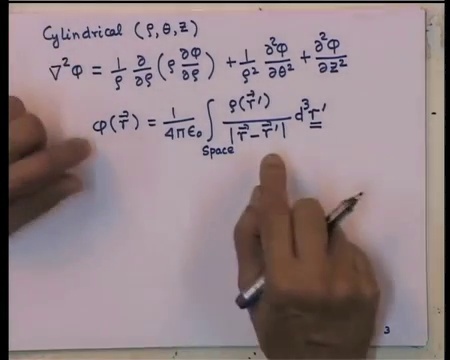 Cylindrical (ρ, θ, z)
∇²φ = 1/ρ ∂/∂ρ (ρ ∂φ/∂ρ) + 1/ρ² ∂²φ/∂θ² + ∂²φ/∂z²
φ(r⃗) = 1/4πε₀ ∫ ρ(r⃗′)/|r⃗ − r⃗′| d³r′
Space
3